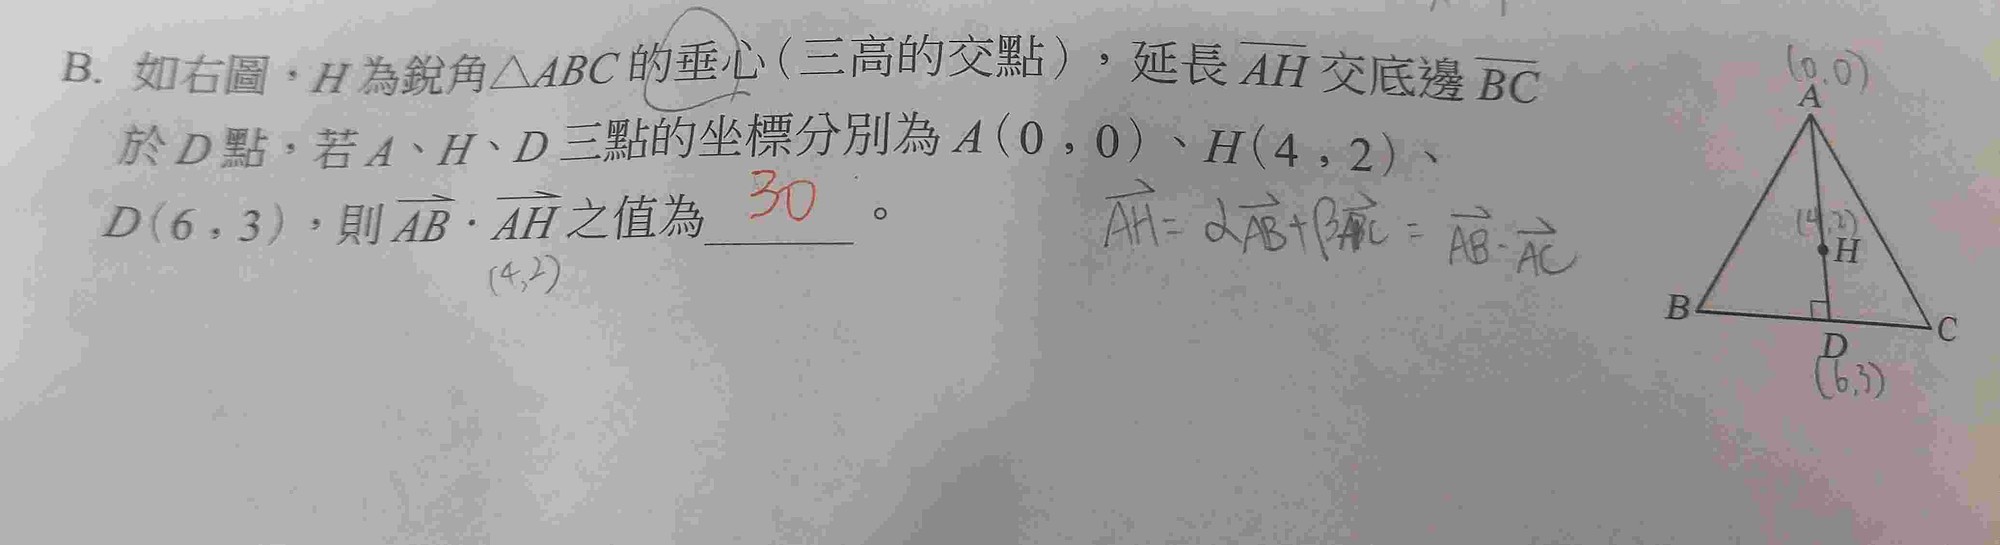 B. 如右圖，H為銳角△ABC的垂心（三高的交點），延長AH交底邊BC
於D點，若A、H、D三點的坐標分別為A(0，0)、H(4，2)、
D(6，3)，則AB·AH之值為 30 。
(4,2)
AH=αAB+βAC = AB·AC
(0,0)
A
(4,2)
H
B
C
D
(6,3)